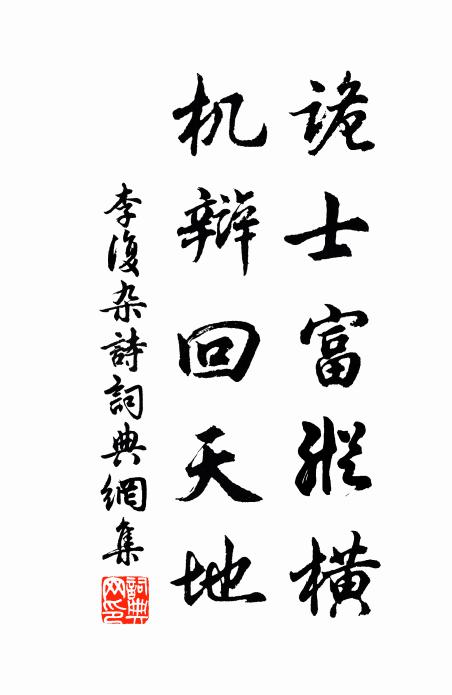 詭士富縱橫
机辯回天地
李復杂詩詞典網集
詞典網印